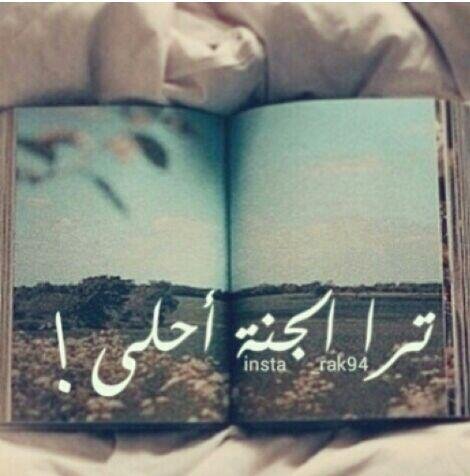 ترا الجنة أحلى !
insta rak94